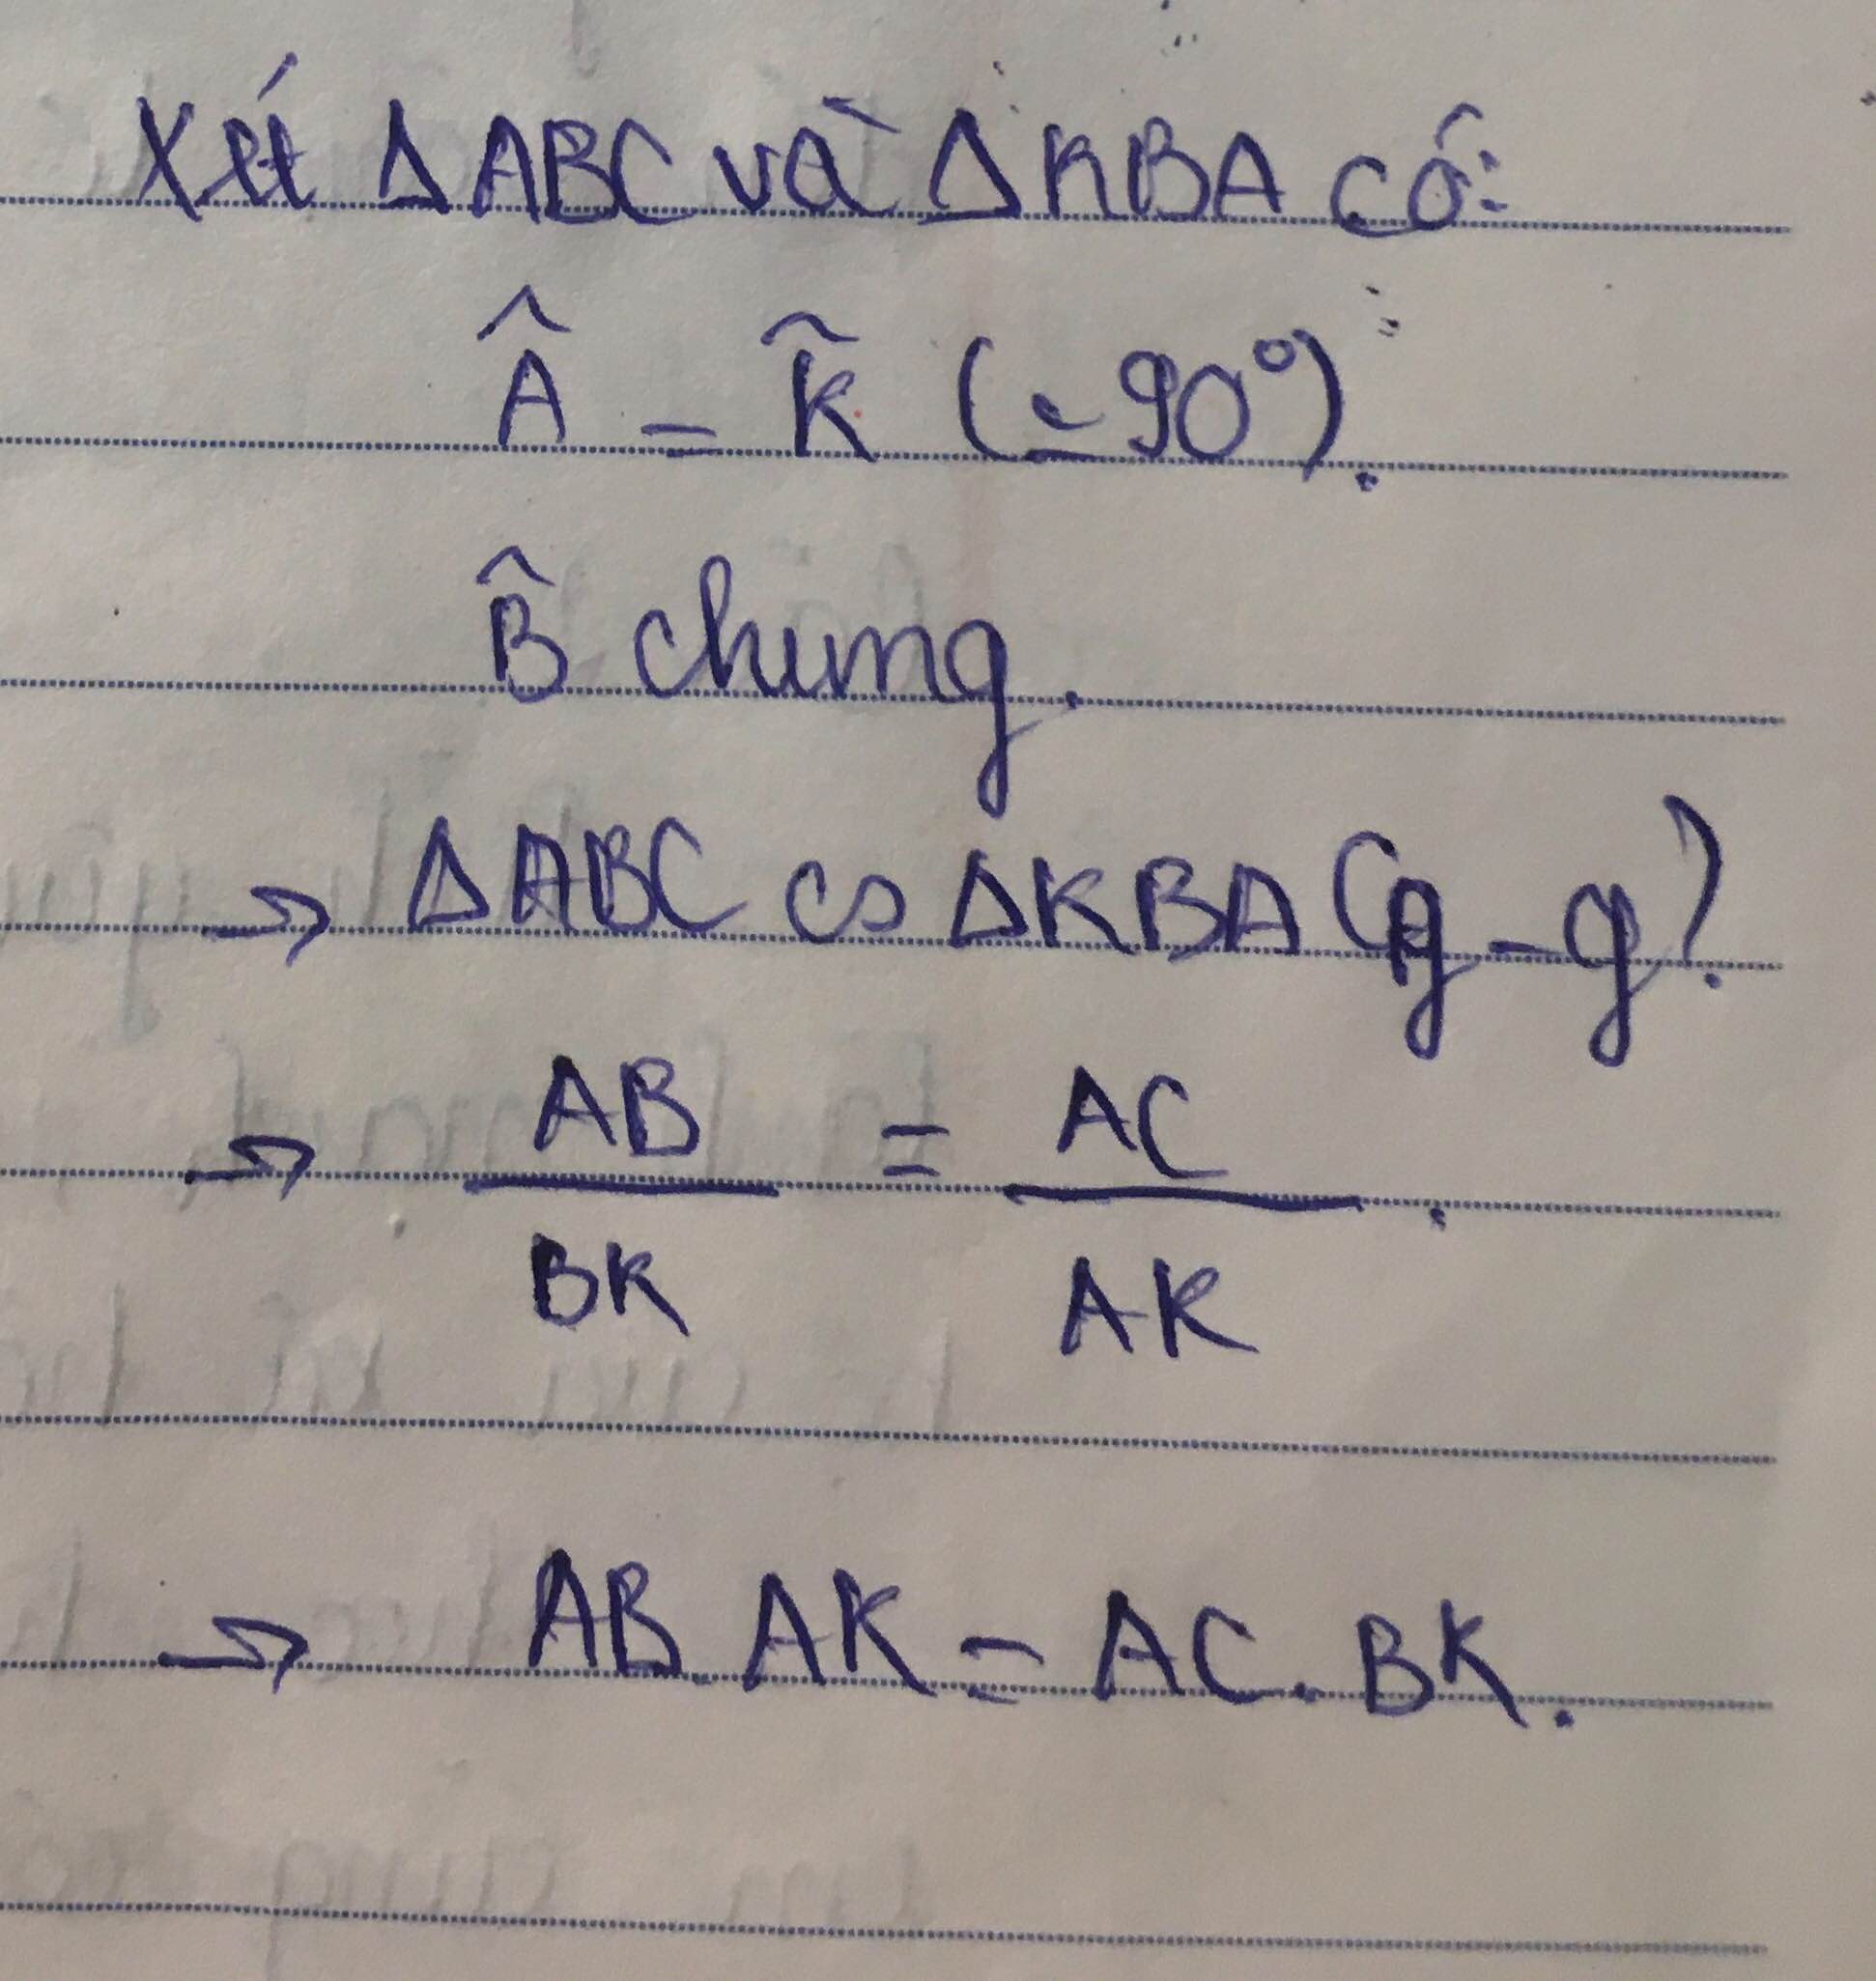 Xét Δ ABC và Δ KBA có:
Â = K̂ (= 90°).
B̂ chung.
→ Δ ABC ∽ Δ KBA (g-g).
→ AB/BK = AC/AK.
→ AB.AK = AC.BK.